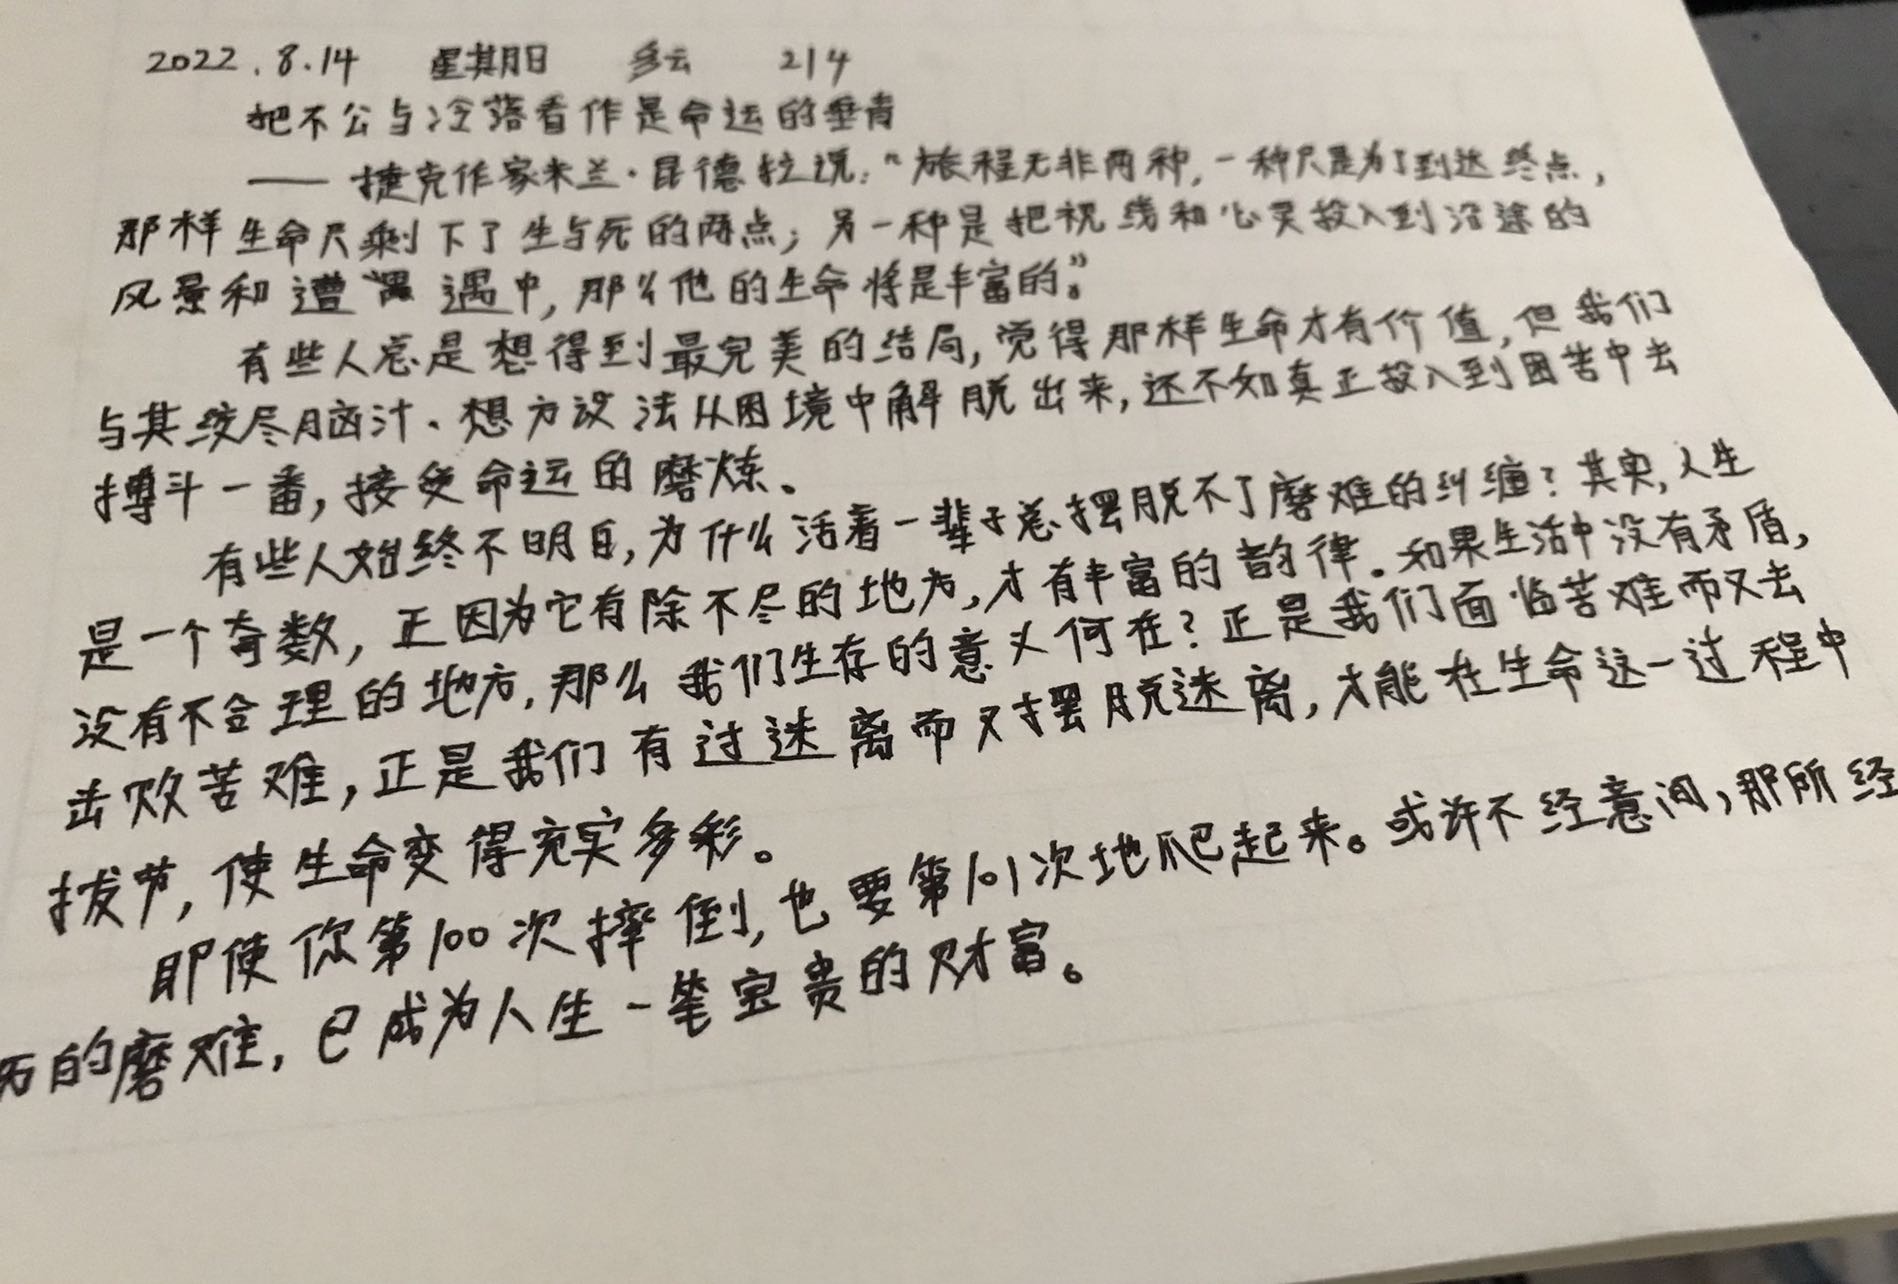 2022.8.14 星期日 多云 214
把不公与冷落看作是命运的垂青
—— 捷克作家米兰·昆德拉说:“旅程无非两种,一种只是为了到达终点,
那样生命只剩下了生与死的两点;另一种是把视线和心灵投入到沿途的
风景和遭遇中,那么他的生命将是丰富的。”
有些人总是想得到最完美的结局,觉得那样生命才有价值,但我们
与其绞尽脑汁、想方设法从困境中解脱出来,还不如真正投入到困苦中去
搏斗一番,接受命运的磨炼。
有些人始终不明白,为什么活着一辈子总摆脱不了磨难的纠缠?其实,人生
是一个奇数,正因为它有除不尽的地方,才有丰富的韵律。如果生活中没有矛盾,
没有不合理的地方,那么我们生存的意义何在?正是我们面临苦难而又去
击败苦难,正是我们有过迷离而又摆脱迷离,才能在生命这一过程中
拔节,使生命变得充实多彩。
即使你第100次摔倒,也要第101次地爬起来。或许不经意间,那所经
历的磨难,已成为人生一笔宝贵的财富。